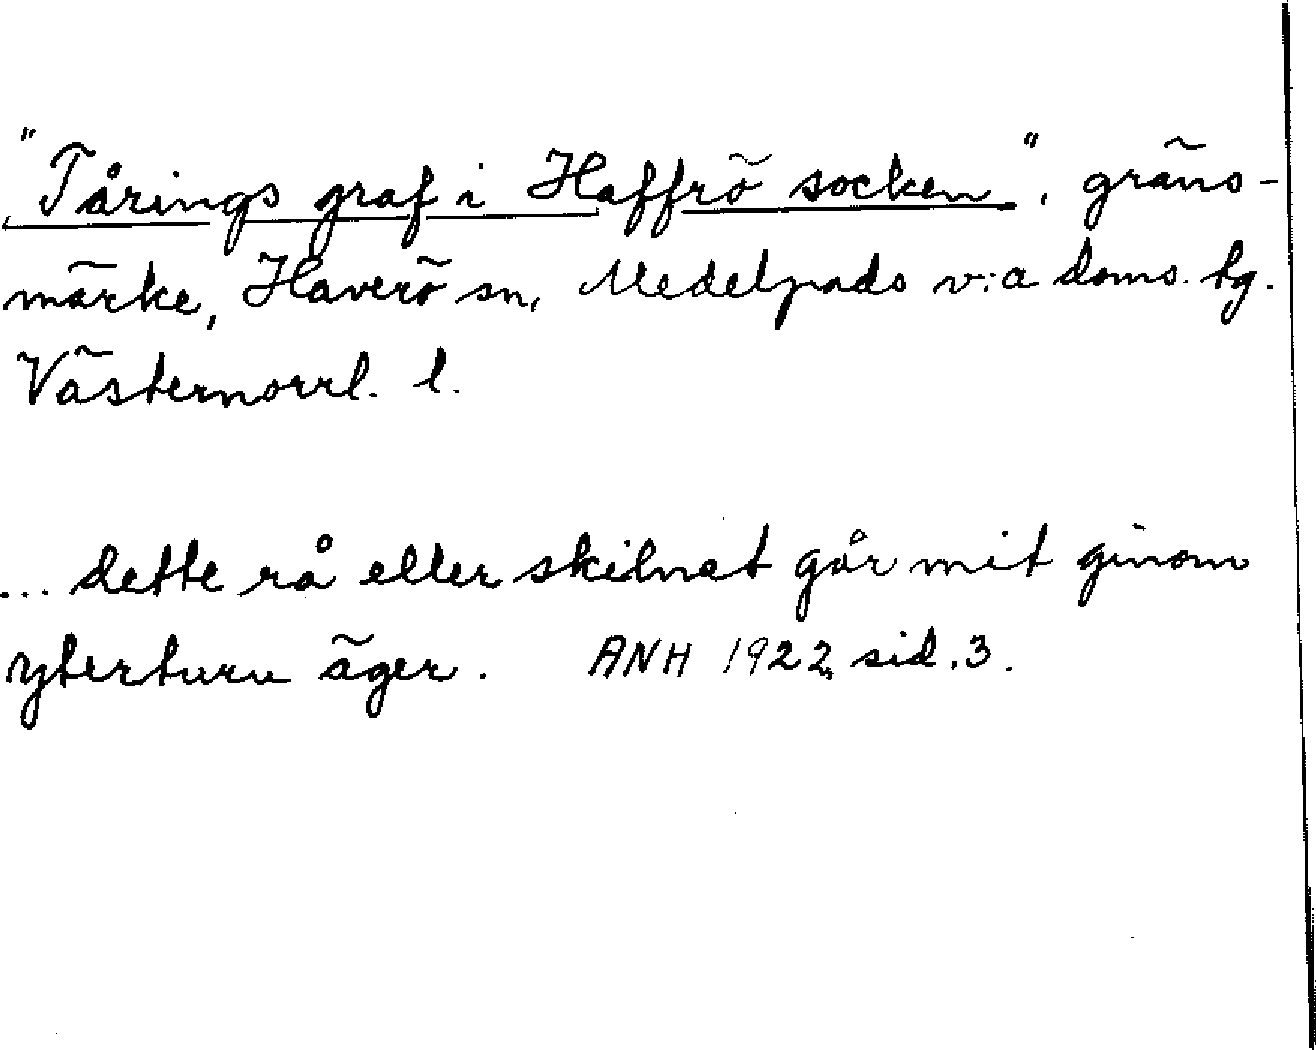 "Tårings graf i Haffrö socken", gräns-
märke, Haverö sn, Medelpads v:a doms. tg.
Västernorrl. l.
... dette rå eller skilnat går mit ginom
ytterturu äger. ANH 1922, sid. 3.